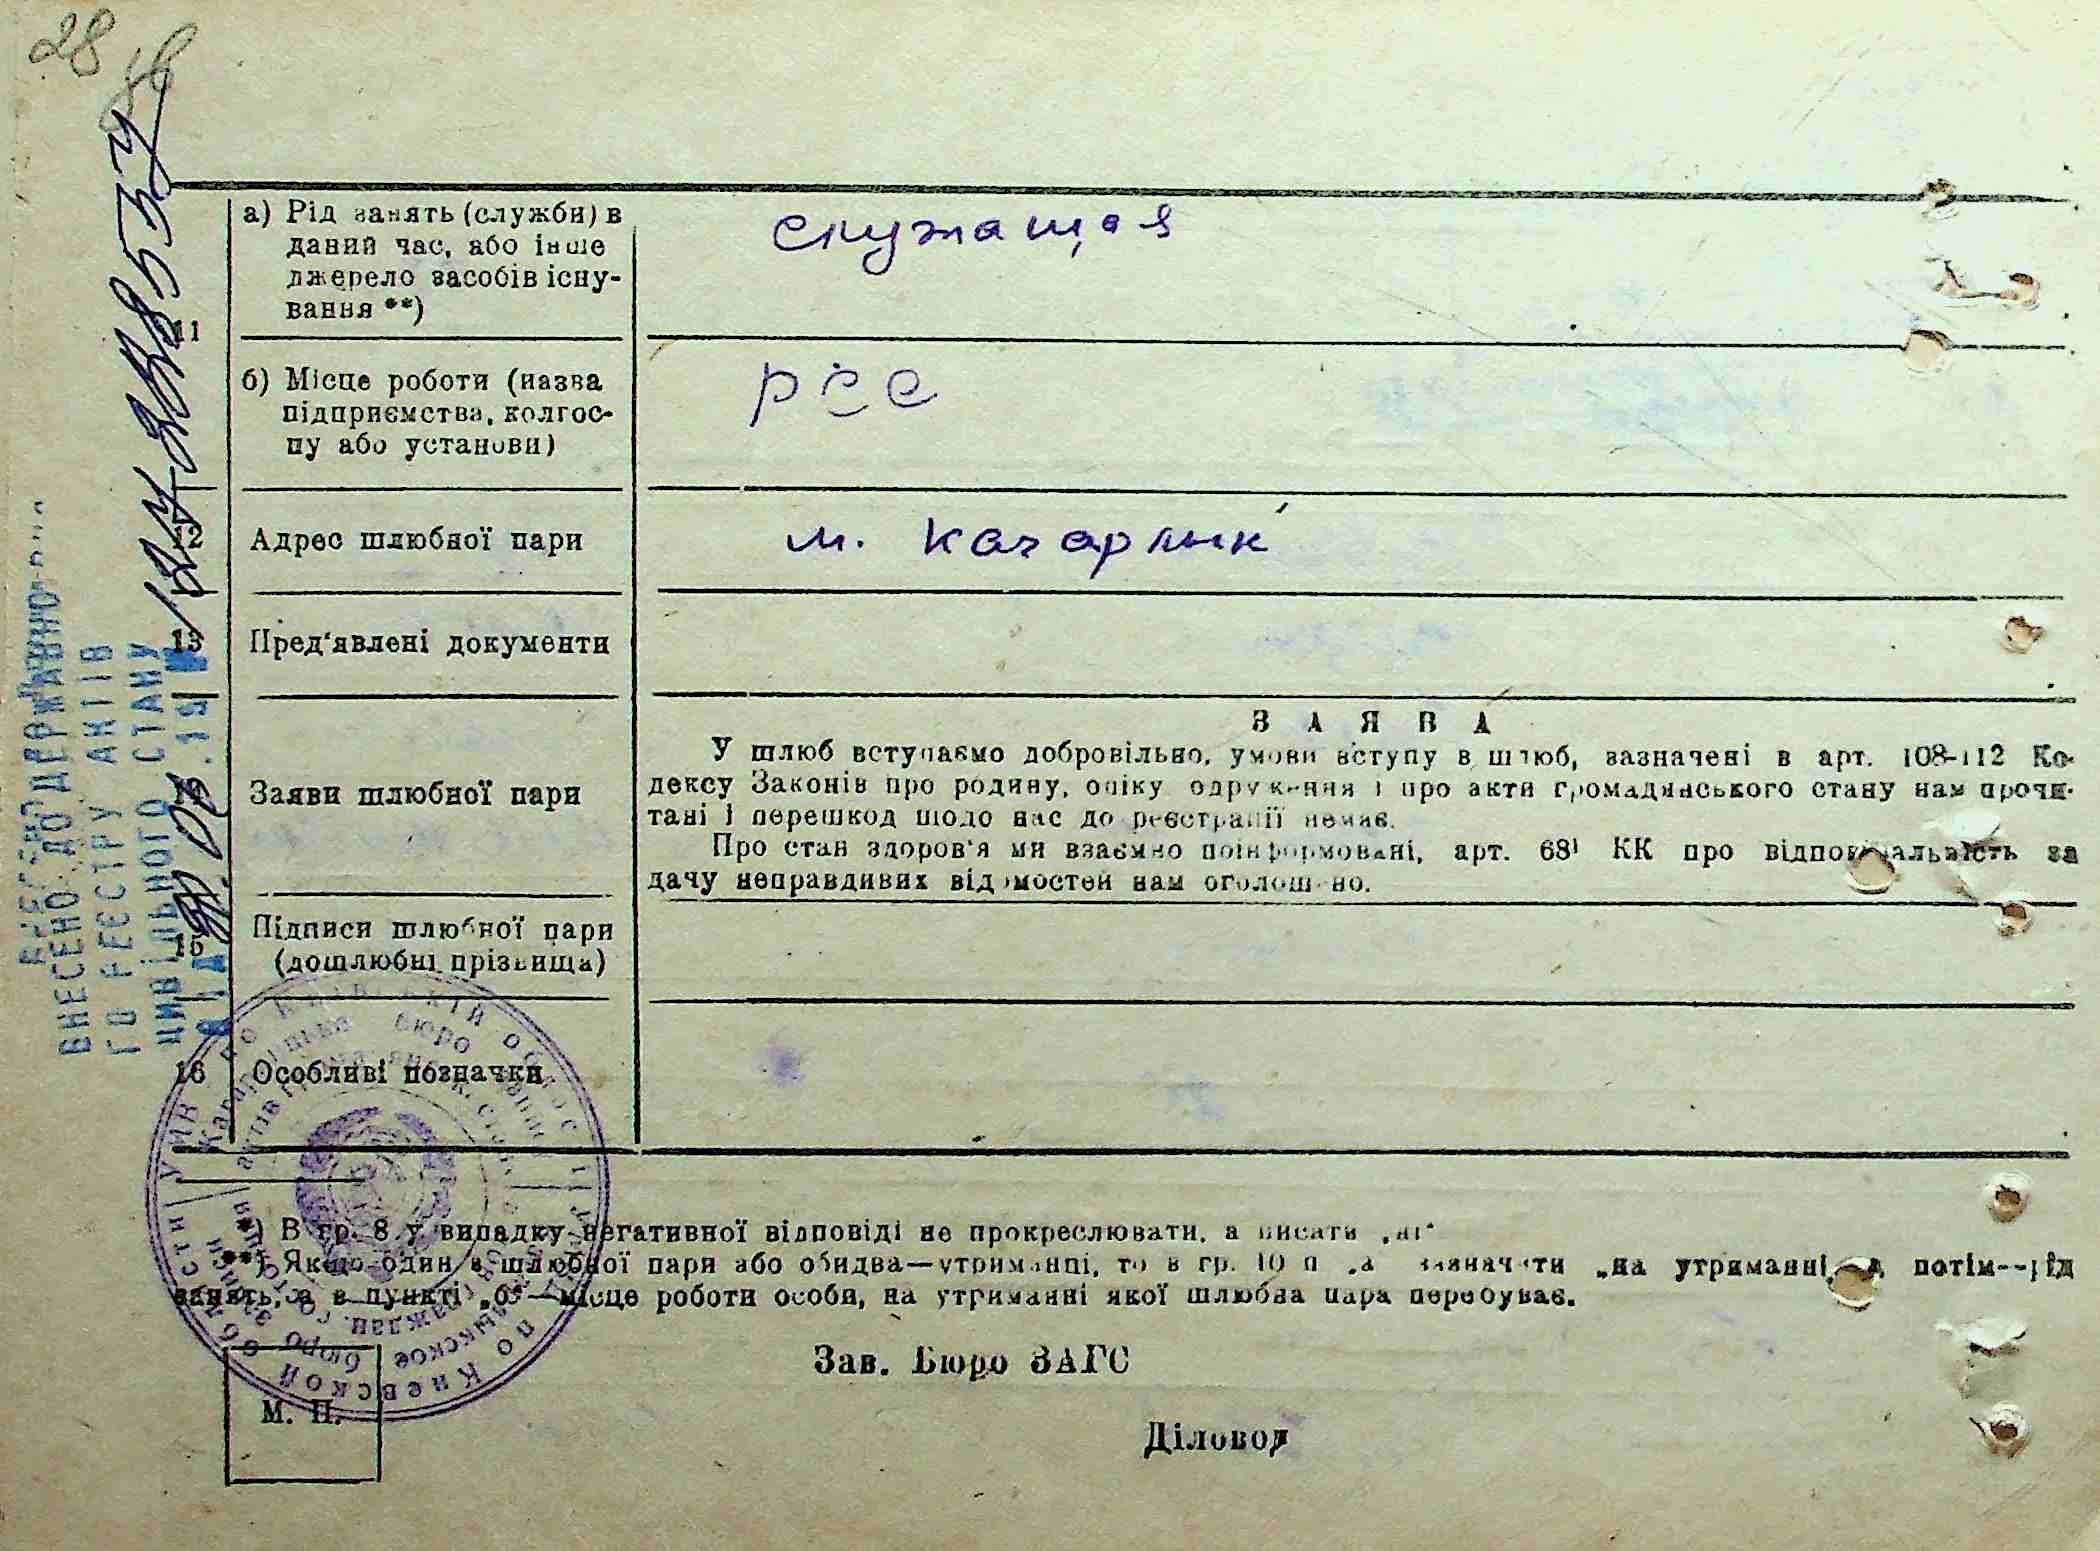 28
а) Рід занять (служби) в
даний час, або інше
джерело засобів існу-
вання **)
служащая
11
б) Місце роботи (назва
підприємства, колгос-
пу або установи)
РСС
12
Адрес шлюбної пари
м. Кагарлык
13
Пред'явлені документи
ЗАЯВА
У шлюб вступаємо добровільно, умови вступу в шлюб, зазначені в арт. 108-112 Ко-
дексу Законів про родину, опіку, одруження і про акти громадянського стану нам прочи-
тані і перешкод щодо нас до реєстрації немає.
Про стан здоров'я ми взаємно поінформовані, арт. 68¹ КК про відповідальність за
дачу неправдивих відомостей нам оголошено.
Заяви шлюбної пари
15
Підписи шлюбної пари
(дошлюбні прізвища)
16
Особливі позначки
*) В гр. 8 у випадку негативної відповіді не прокреслювати, а писати „ні"
**) Якщо один з шлюбної пари або обидва—утриманці, то в гр. 10 п. „а" зазначити „на утриманні, а потім—рід
занять, а в пункті „б"—місце роботи особи, на утриманні якої шлюбна пара перебуває.
Зав. Бюро ЗАГС
М. П.
Діловод
ВНЕСЕНО ДО ДЕРЖАВНО-
ГО РЕЄСТРУ АКТІВ
ЦИВІЛЬНОГО СТАНУ